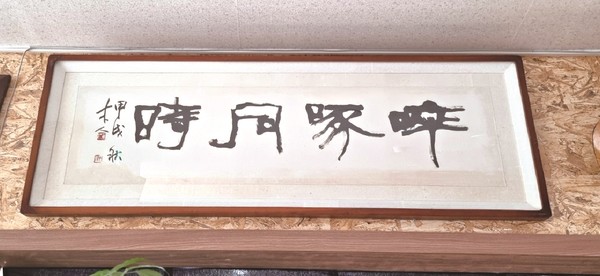 啐啄同時
甲戌 秋